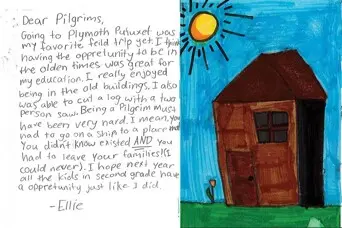 Dear Pilgrims,
Going to Plymoth Patuxet was
my favorite feild trip yet. I think
having the oppretunity to be in
the olden times was great for
my education. I really enjoyed
being in the old buildings. I also
was able to cut a log with a two
person saw. Being a Pilgrim must
have been very hard. I mean, you
had to go on a ship to a place that
You didn't know existed AND you
had to leave your families!(I
could never). I hope next year
all the kids in second grade have
a oppretunity just like I did.
-Ellie